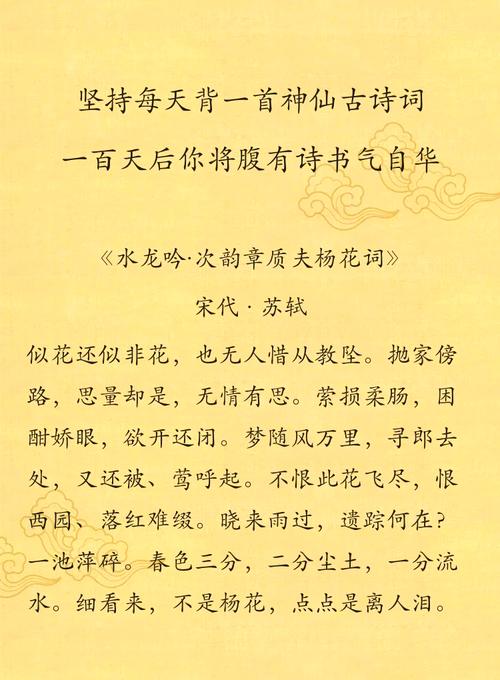 坚持每天背一首神仙古诗词
一百天后你将腹有诗书气自华
《水龙吟·次韵章质夫杨花词》
宋代·苏轼
似花还似非花，也无人惜从教坠。抛家傍
路，思量却是，无情有思。萦损柔肠，困
酣娇眼，欲开还闭。梦随风万里，寻郎去
处，又还被、莺呼起。不恨此花飞尽，恨
西园、落红难缀。晓来雨过，遗踪何在？
一池萍碎。春色三分，二分尘土，一分流
水。细看来，不是杨花，点点是离人泪。